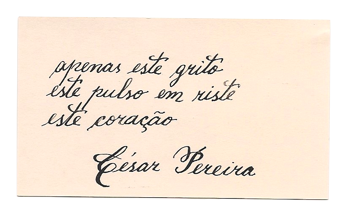 apenas este grito
este pulso em riste
este coração
César Pereira